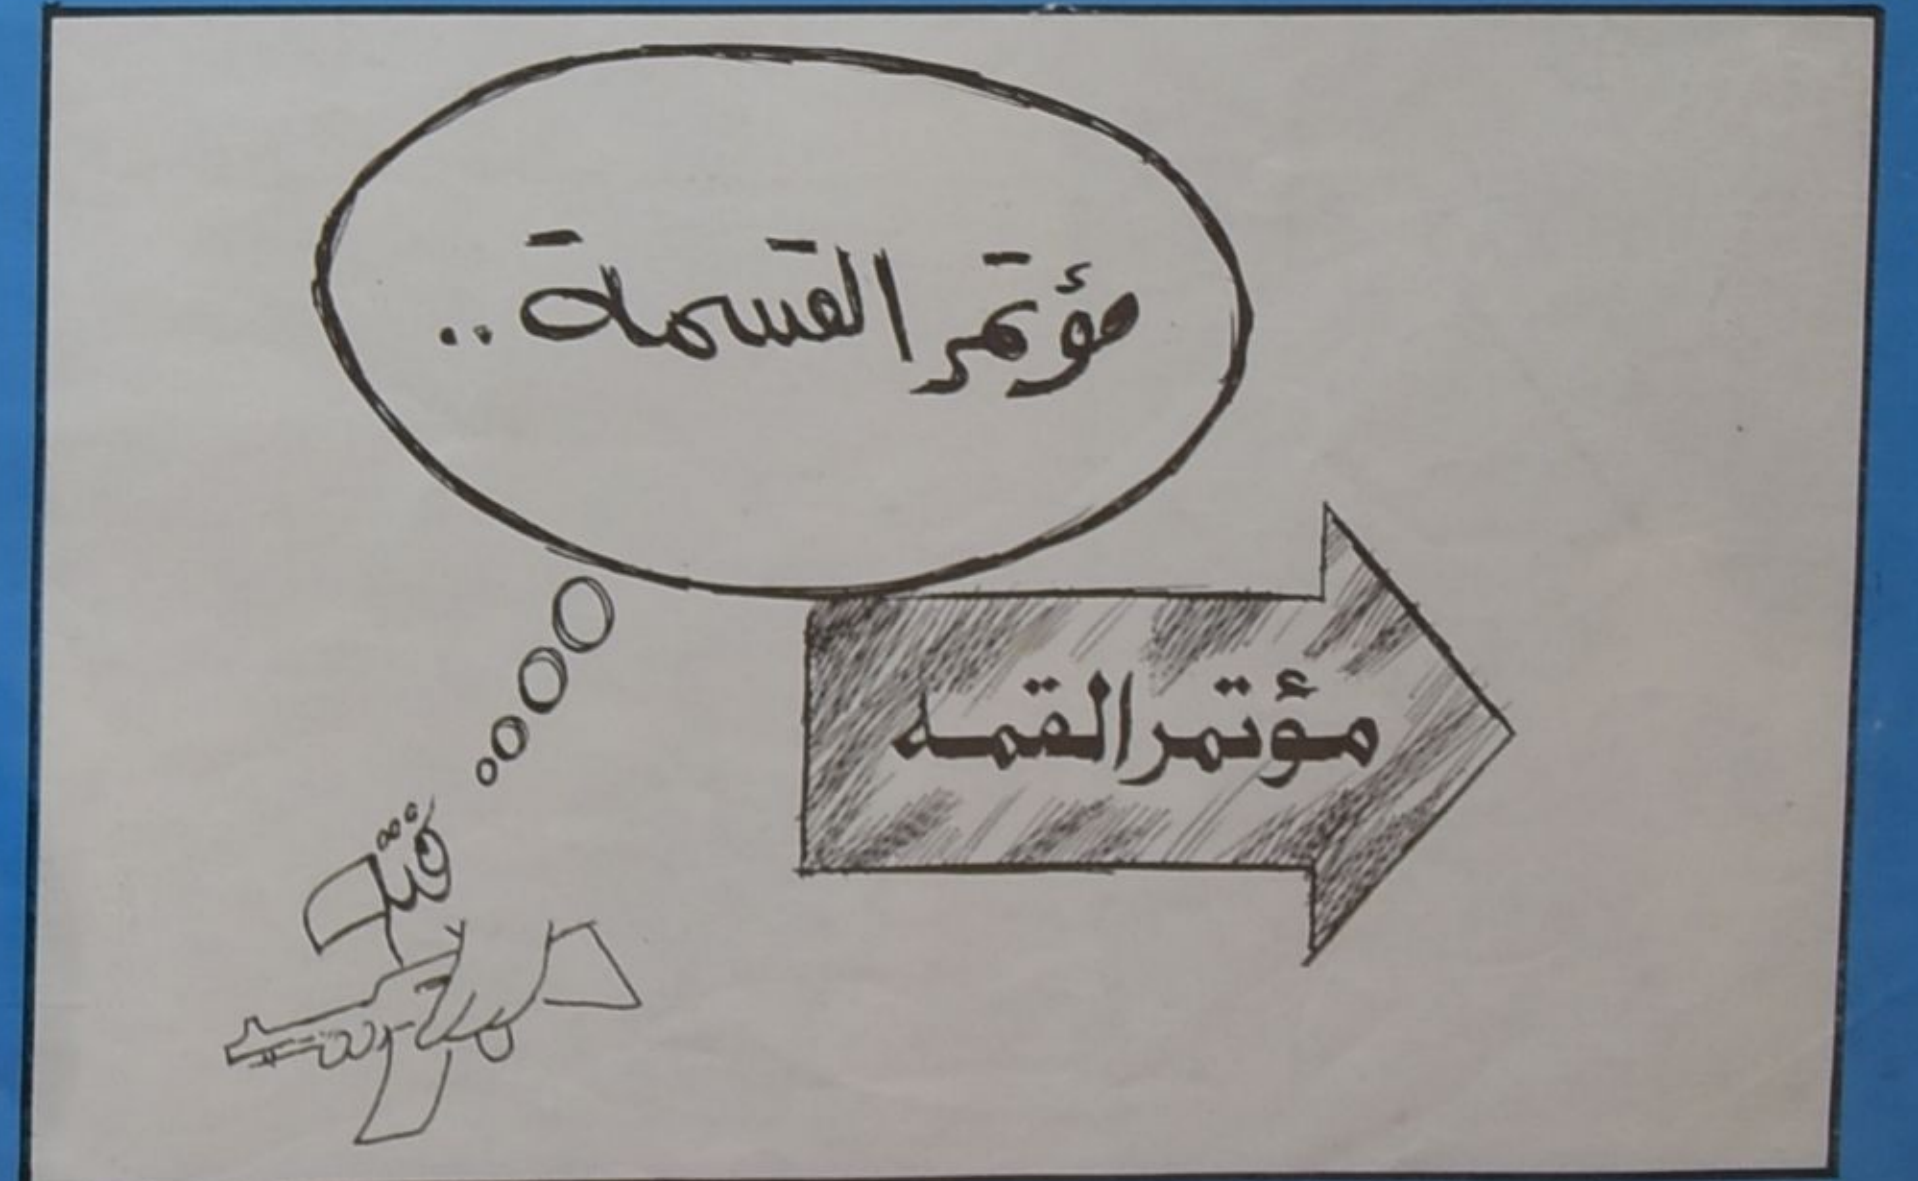 مؤتمر القسمة..
مؤتمر القمه